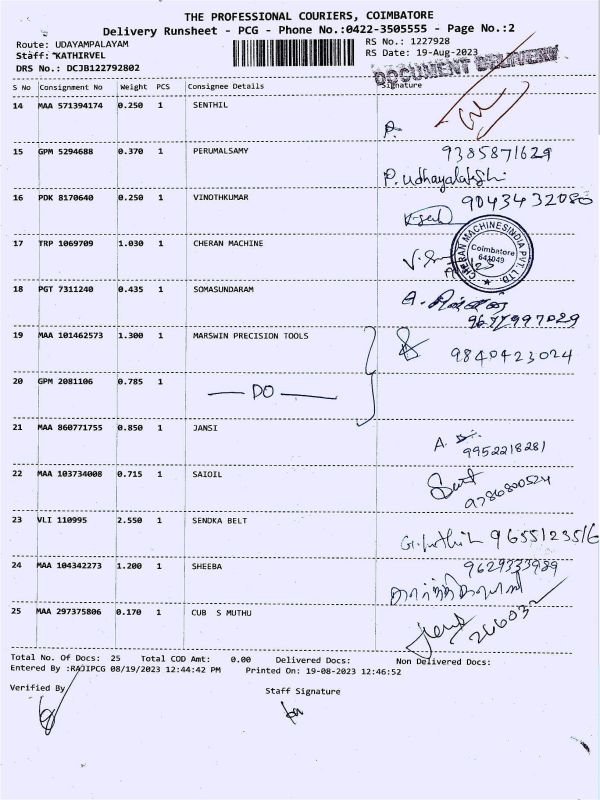 THE PROFESSIONAL COURIERS, COIMBATORE
Delivery Runsheet - PCG - Phone No.:0422-3505555 - Page No.:2
Route: UDAYAMPALAYAM RS No.: 1227928
Staff: *KATHIRVEL RS Date: 19-Aug-2023
DRS No.: DCJB122792802 DOCUMENT DELIVERY
S No Consignment No Weight PCS Consignee Details Signature
14 MAA 571394174 0.250 1 SENTHIL
15 GPM 5294688 0.370 1 PERUMALSAMY 9385871629
P. Udhayalakshi
16 PDK 8170640 0.250 1 VINOTHKUMAR 9043432080
17 TRP 1069709 1.030 1 CHERAN MACHINE CHERAN MACHINES INDIA PVT. LTD. Coimbatore 641049
18 PGT 7311240 0.435 1 SOMASUNDARAM
9677997029
19 MAA 101462573 1.300 1 MARSWIN PRECISION TOOLS 9840423024
20 GPM 2081106 0.785 1 DO
21 MAA 860771755 0.850 1 JANSI 9952218281
22 MAA 103734008 0.715 1 SAIOIL
9786800524
23 VLI 110995 2.550 1 SENDKA BELT 9655123516
24 MAA 104342273 1.200 1 SHEEBA 9629333989
25 MAA 297375806 0.170 1 CUB S MUTHU
Total No. Of Docs: 25 Total COD Amt: 0.00 Delivered Docs: Non Delivered Docs:
Entered By :RAJIPCG 08/19/2023 12:44:42 PM Printed On: 19-08-2023 12:46:52
Verified By Staff Signature